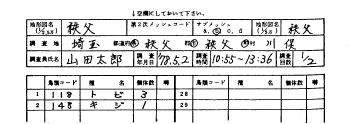 ↓空欄にして下さい.
地形図名 (1/5万) 秩父 第2次メッシュコード サブメッシュ a, b, c, d 地形図名 (1/5万) 秩父
調査地 埼玉 都道府県 秩父 郡市 秩父 町村 川俣
調査員氏名 山田太郎 調査年月日 '78.5.2 調査時間 10:55~13:36 調査回数 1/2
鳥類コード 種名 個体数 囀 鳥類コード 種名 個体数 囀
1 118 トビ 3 28
2 148 キジ 1 29